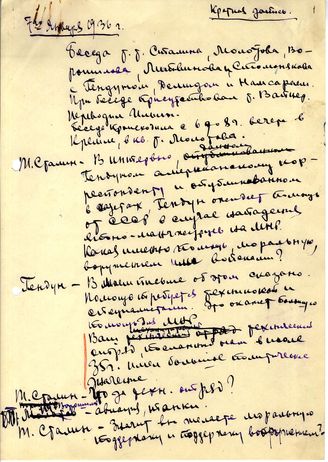 Краткая запись.
7го Января 1936 г.
Беседа т.т. Сталина, Молотова, Во-
рошилова, Литвинова и Стомонякова
с Гендуном, Демидом и Намсараем.
При беседе присутствовал т. Вайнер.
Переводил Ильин.
Беседа происходила с 6 до 8 ч. вечера в
Кремле, в кв. т. Молотова.
Т. Сталин – В интервью, данном
Гендуном американскому кор-
респонденту и опубликованном
в газетах Гендун ожидает помощь
от СССР в случае нападения
японо-манчжурцев на МНР.
Какая именно помощь, моральную,
оружием или войсками?
Гендун – В письме об этом сказано.
Помощь требуется техникой и
специалистами. Это окажет большую
помощь для МНР.
Ваш технический
отряд, посланный нам в
35 г. имел большое политическое
значение.
Т. Сталин – Что за техн. отряд?
Ворошилов
– авиация, танки.
Т. Сталин – Значит вы желаете моральную
поддержку и поддержку вооружением?